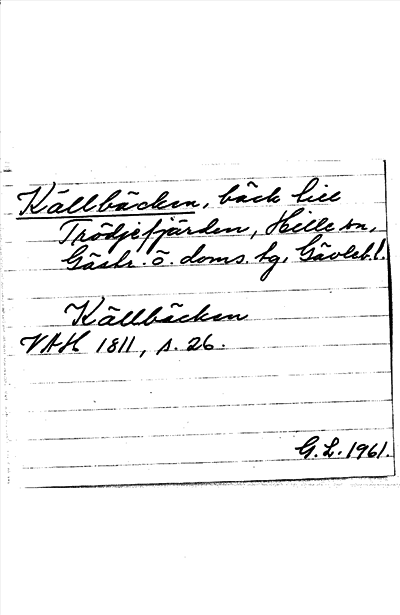 Källbäcken, bäck till
Trödjefjärden, Hille sn,
Gästr. ö. doms. tg, Gävleb. l.
Källbäcken
VAH 1811, s. 26.
G. L. 1961.